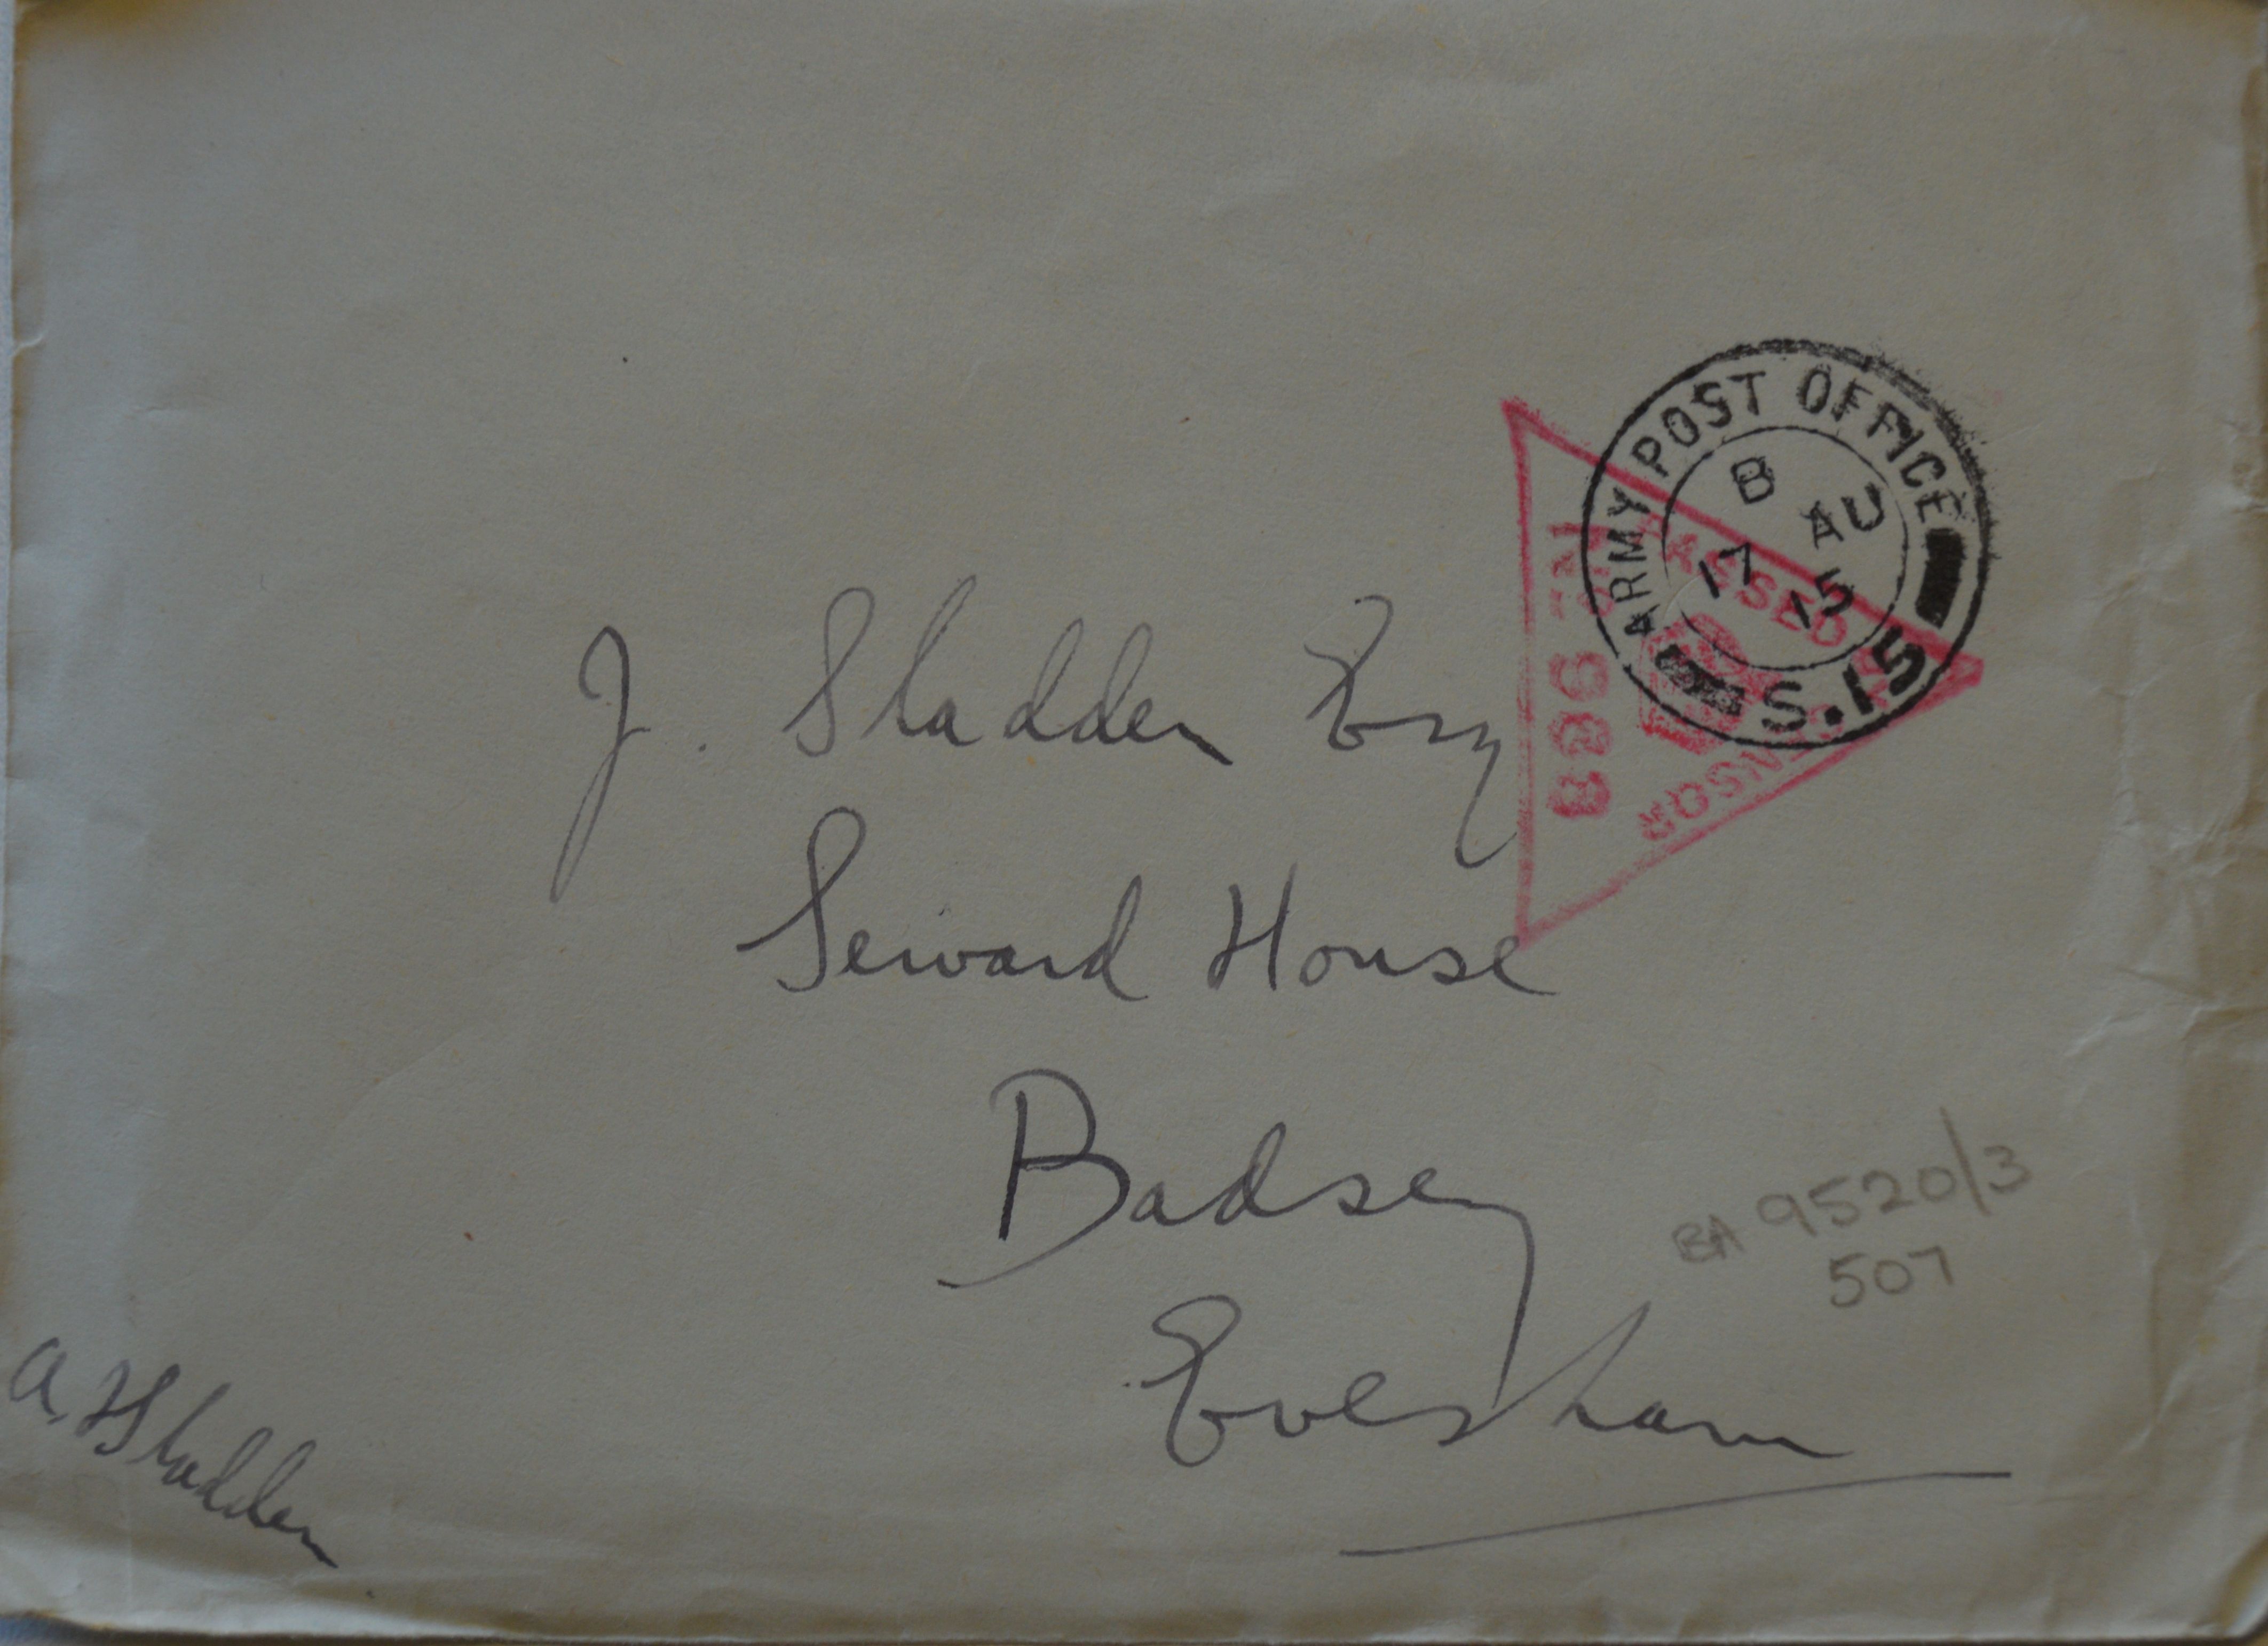 ARMY POST OFFICE
B
AU
17 15
S.15
PASSED
CENSOR
J. Sladden Esq
Seward House
Badsey
Evesham
BA 9520/3
507
A. Sladden